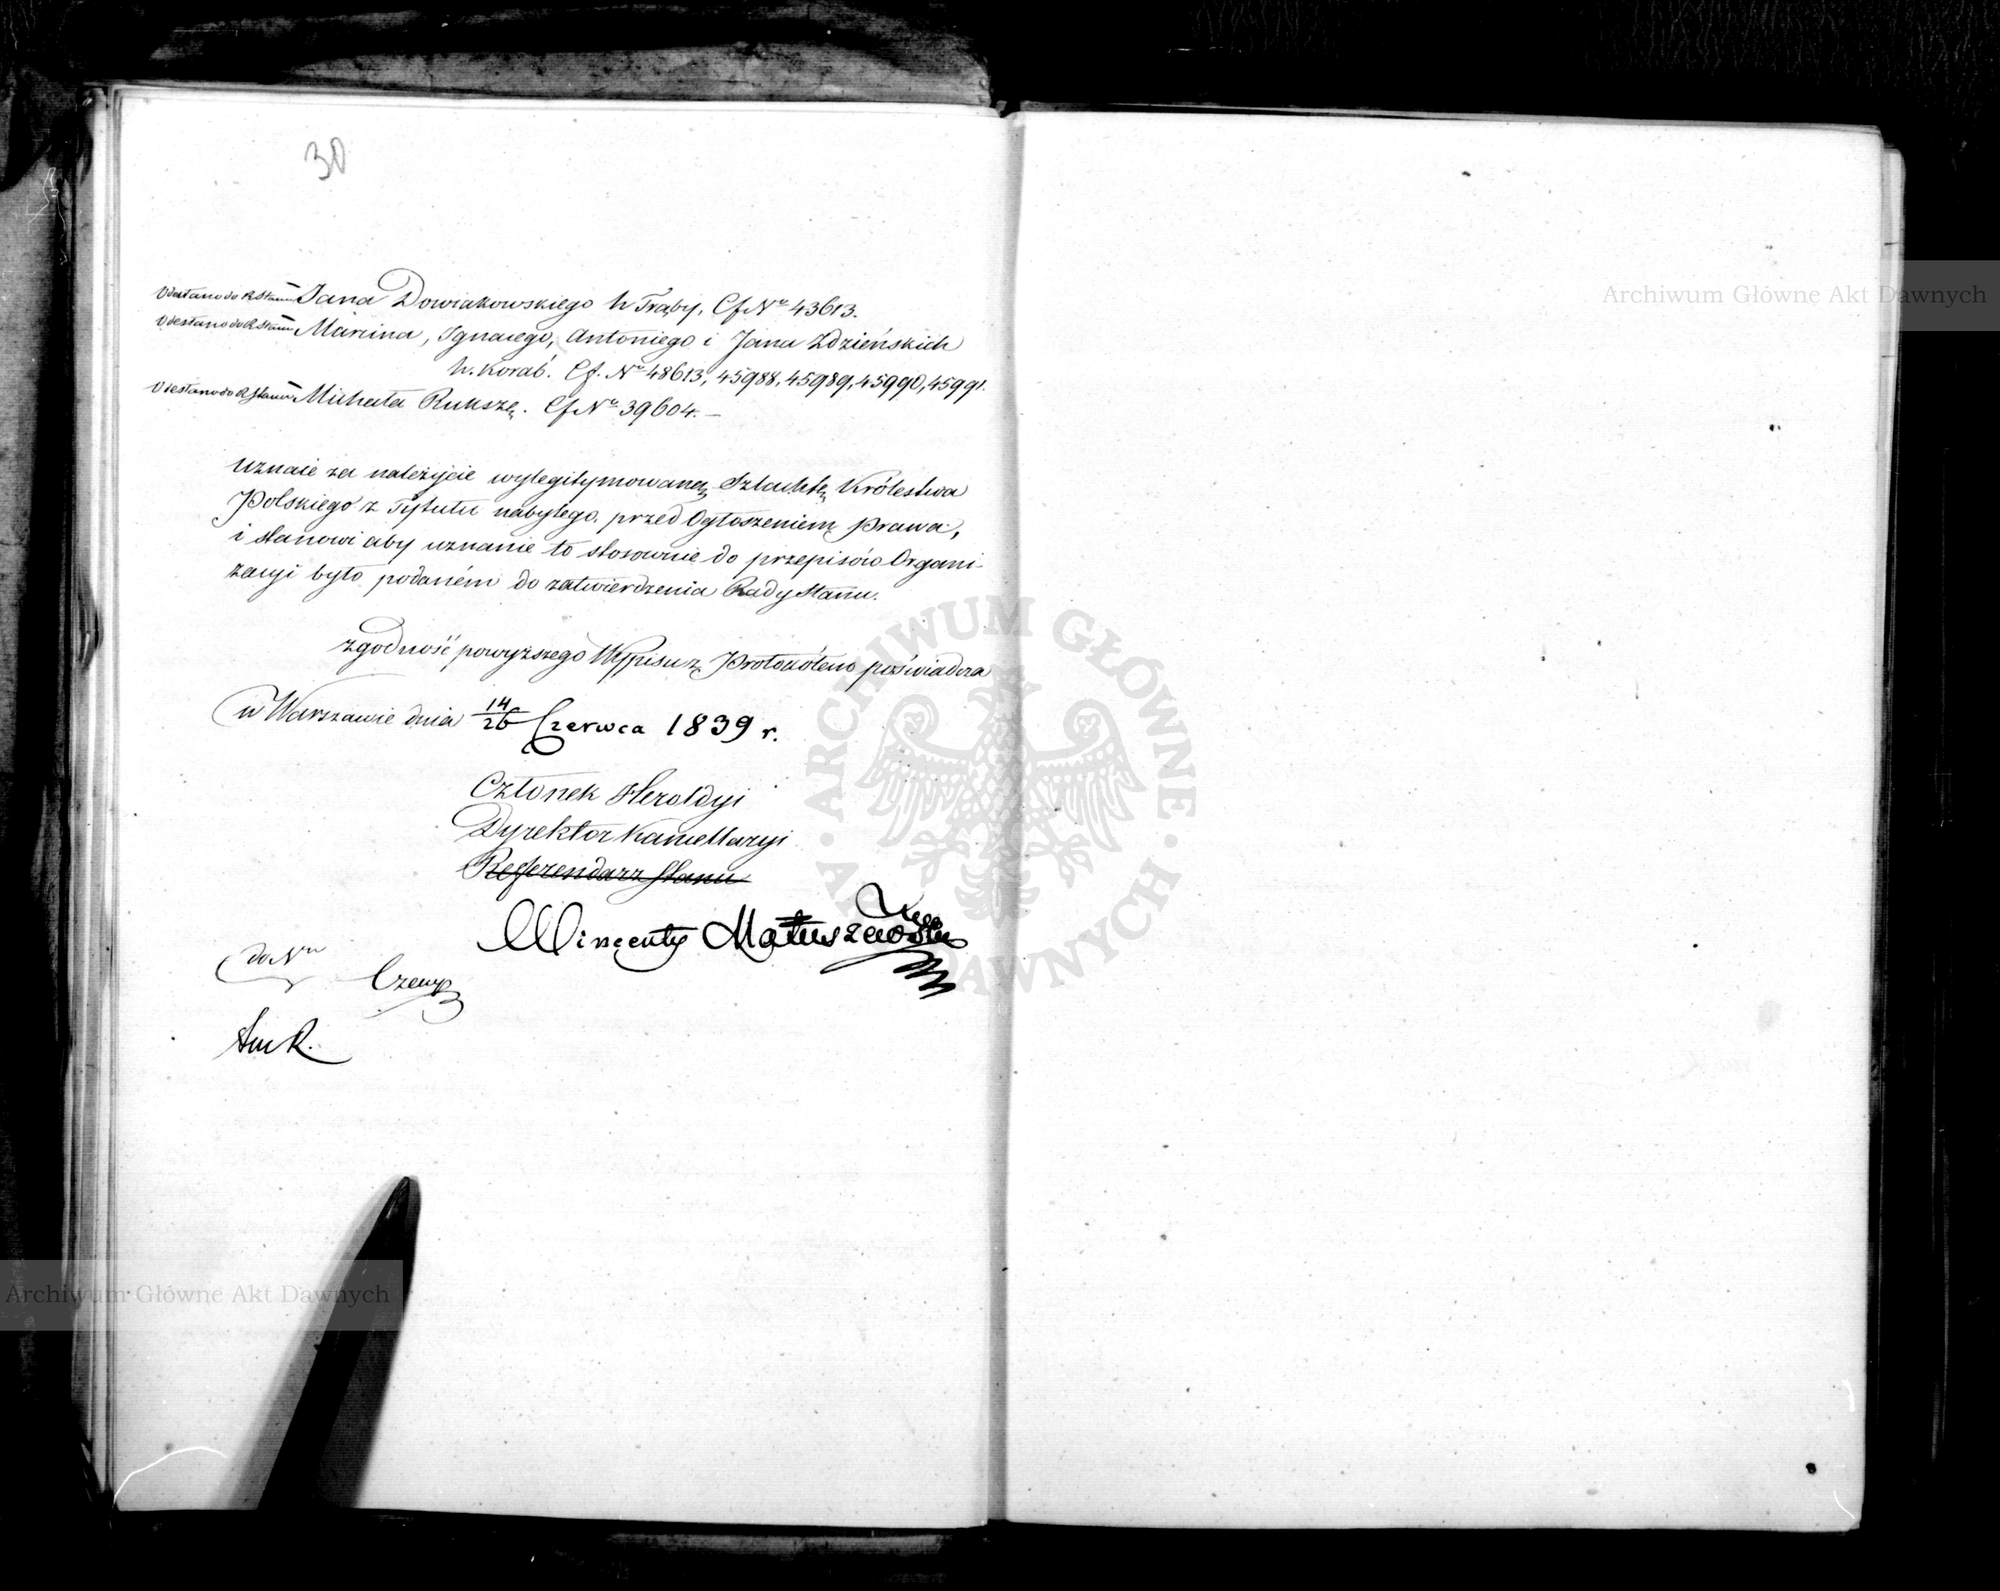 30
Odesłano do R. Stanu Jana Dowiakowskiego h. Trąby, Cf Nr 43613.
Odesłano do R. Stanu Marcina, Ignacego, Antoniego i Jana Zdzieńskich
h. Korab. Cf. Nr 48613, 45988, 45989, 45990, 45991.
Odesłano do R. Stanu Michała Rukszę. Cf Nr 39604. —
uznaie za należycie wylegitymowaną Szlachtę Królestwa
Polskiego z Tytułu nabytego przed Ogłoszeniem prawa,
i stanowi aby uznanie to stosownie do przepisów Organi-
zacyi było podaném do zatwierdzenia Rady Stanu.
Zgodność powyższego Wypisu z Protokółem poświadcza
w Warszawie dnia 14/26 Czerwca 1839 r.
Członek Heroldyi
Dyrektor Kancellaryi
Referendarz Stanu
Wincenty Matuszewski
do Nru
ARCHIWUM GŁÓWNE AKT DAWNYCH
Archiwum Główne Akt Dawnych
Archiwum Główne Akt Dawnych